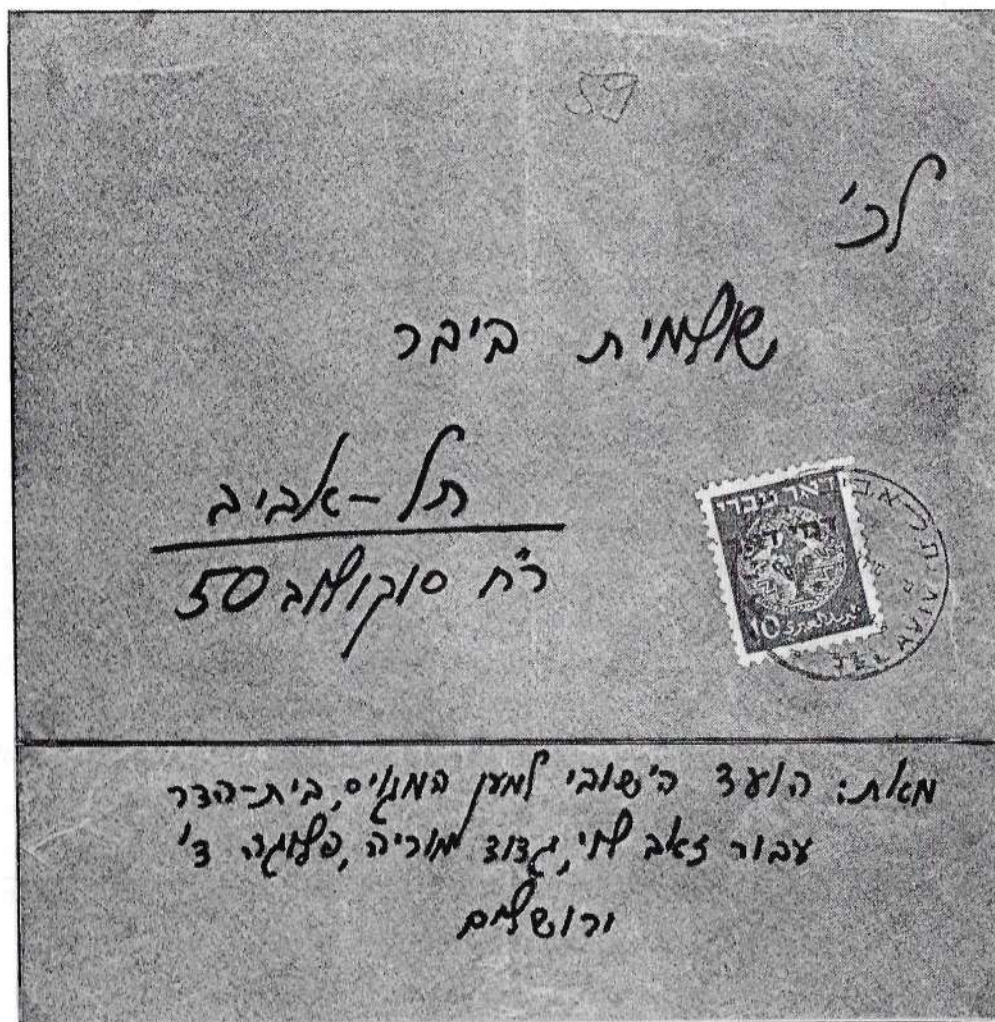 59
לכ'
שולמית ביבר
תל-אביב
רח' סוקולוב 50
דאר עברי
10
תל-אביב
TEL AVIV
מאת: הועד הישובי למען המגויס, בית-הדר
עבור זאב לוי, גדוד מוריה, פלוגה ד'
ירושלים